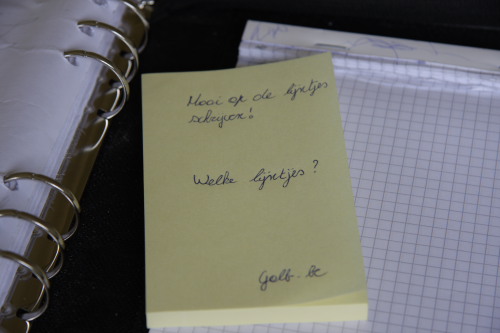 Mooi op de lijntjes
schrijven!
Welke lijntjes?
Golb.be